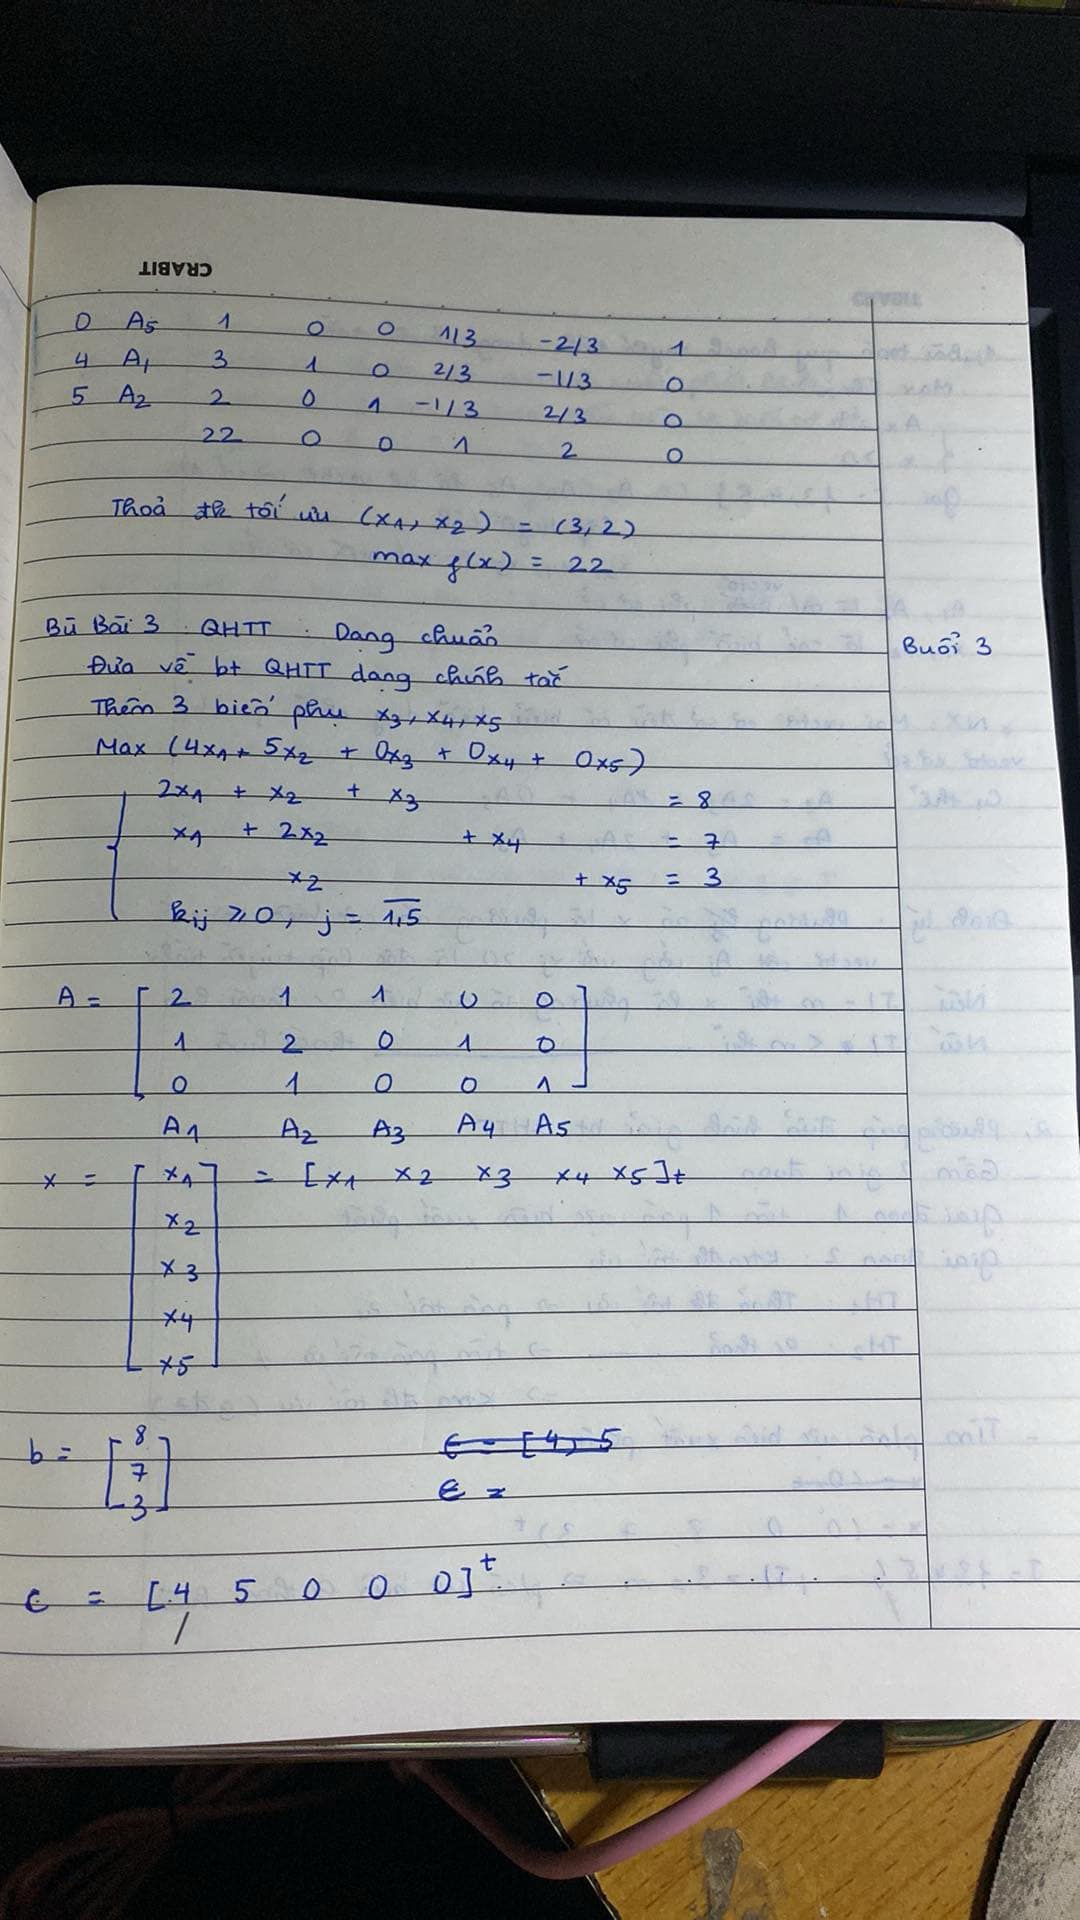 CRABIT
0 A5 1 0 0 1/3 -2/3 1
4 A1 3 1 0 2/3 -1/3 0
5 A2 2 0 1 -1/3 2/3 0
22 0 0 1 2 0
Thoả đk tối ưu (x1, x2) = (3, 2)
max f(x) = 22
Bù Bài 3 QHTT . Dạng chuẩn
Buổi 3
Đưa về bt QHTT dạng chính tắc
Thêm 3 biến phụ x3, x4, x5
Max (4x1 + 5x2 + 0x3 + 0x4 + 0x5)
2x1 + x2 + x3 = 8
x1 + 2x2 + x4 = 7
x2 + x5 = 3
xij ≥ 0, j = 1,5
A = [ 2 1 1 0 0 ]
1 2 0 1 0
0 1 0 0 1
A1 A2 A3 A4 A5
x = [ x1 ] = [x1 x2 x3 x4 x5]t
x2
x3
x4
x5
b = [ 8
7
3 ]
c = [4, 5
c =
c = [4 5 0 0 0]t